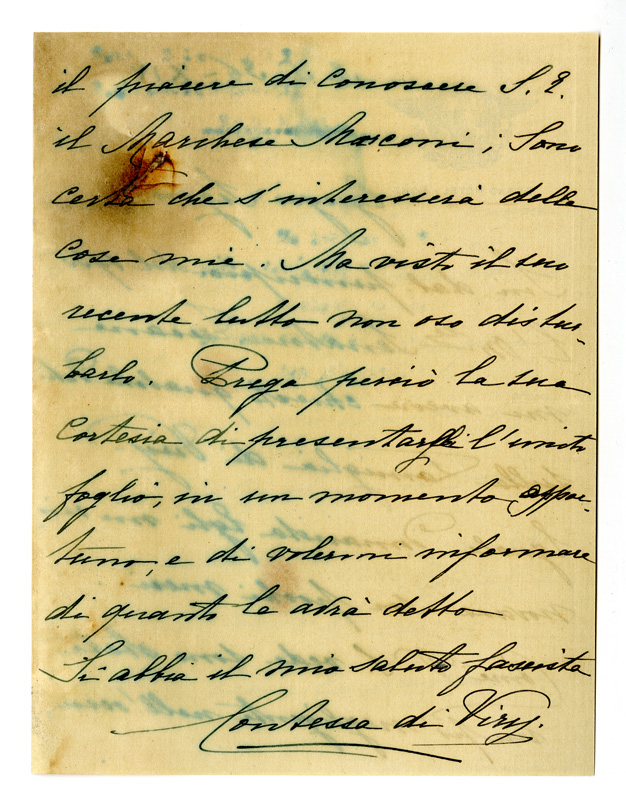 il piacere di conoscere S. E.
il Marchese Mosconi; Sono
certa che s'interesserà delle
cose mie. Ma visto il suo
recente lutto non oso distur-
barlo. Prego perciò la sua
cortesia di presentargli l'unito
foglio, in un momento oppor-
tuno, e di volermi informare
di quanto le avrà detto
Si abbia il mio saluto fascista
Contessa di Viry.